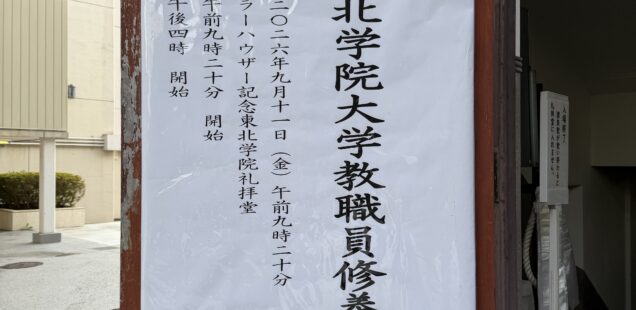 入場終了
礼拝堂に入れません。
北学院大学教職員修養
二〇二六年九月十一日（金）午前九時二十分
ラーハウザー記念東北学院礼拝堂
午前九時二十分　開始
午後四時　開始